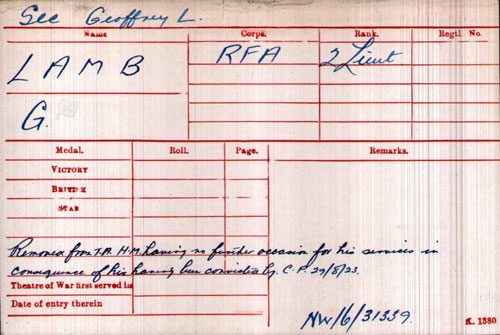 See Geoffrey L.
Name Corps. Rank. Regtl. No.
LAMB RFA 2 Lieut
G.
Medal. Roll. Page. Remarks.
VICTORY
BRITISH
STAR
Removed from T.A. H.M. having no further occasion for his services in
consequence of his having been convicted by C.P. 29/8/23.
Theatre of War first served in
Date of entry therein
NW/6/31339. K. 1380